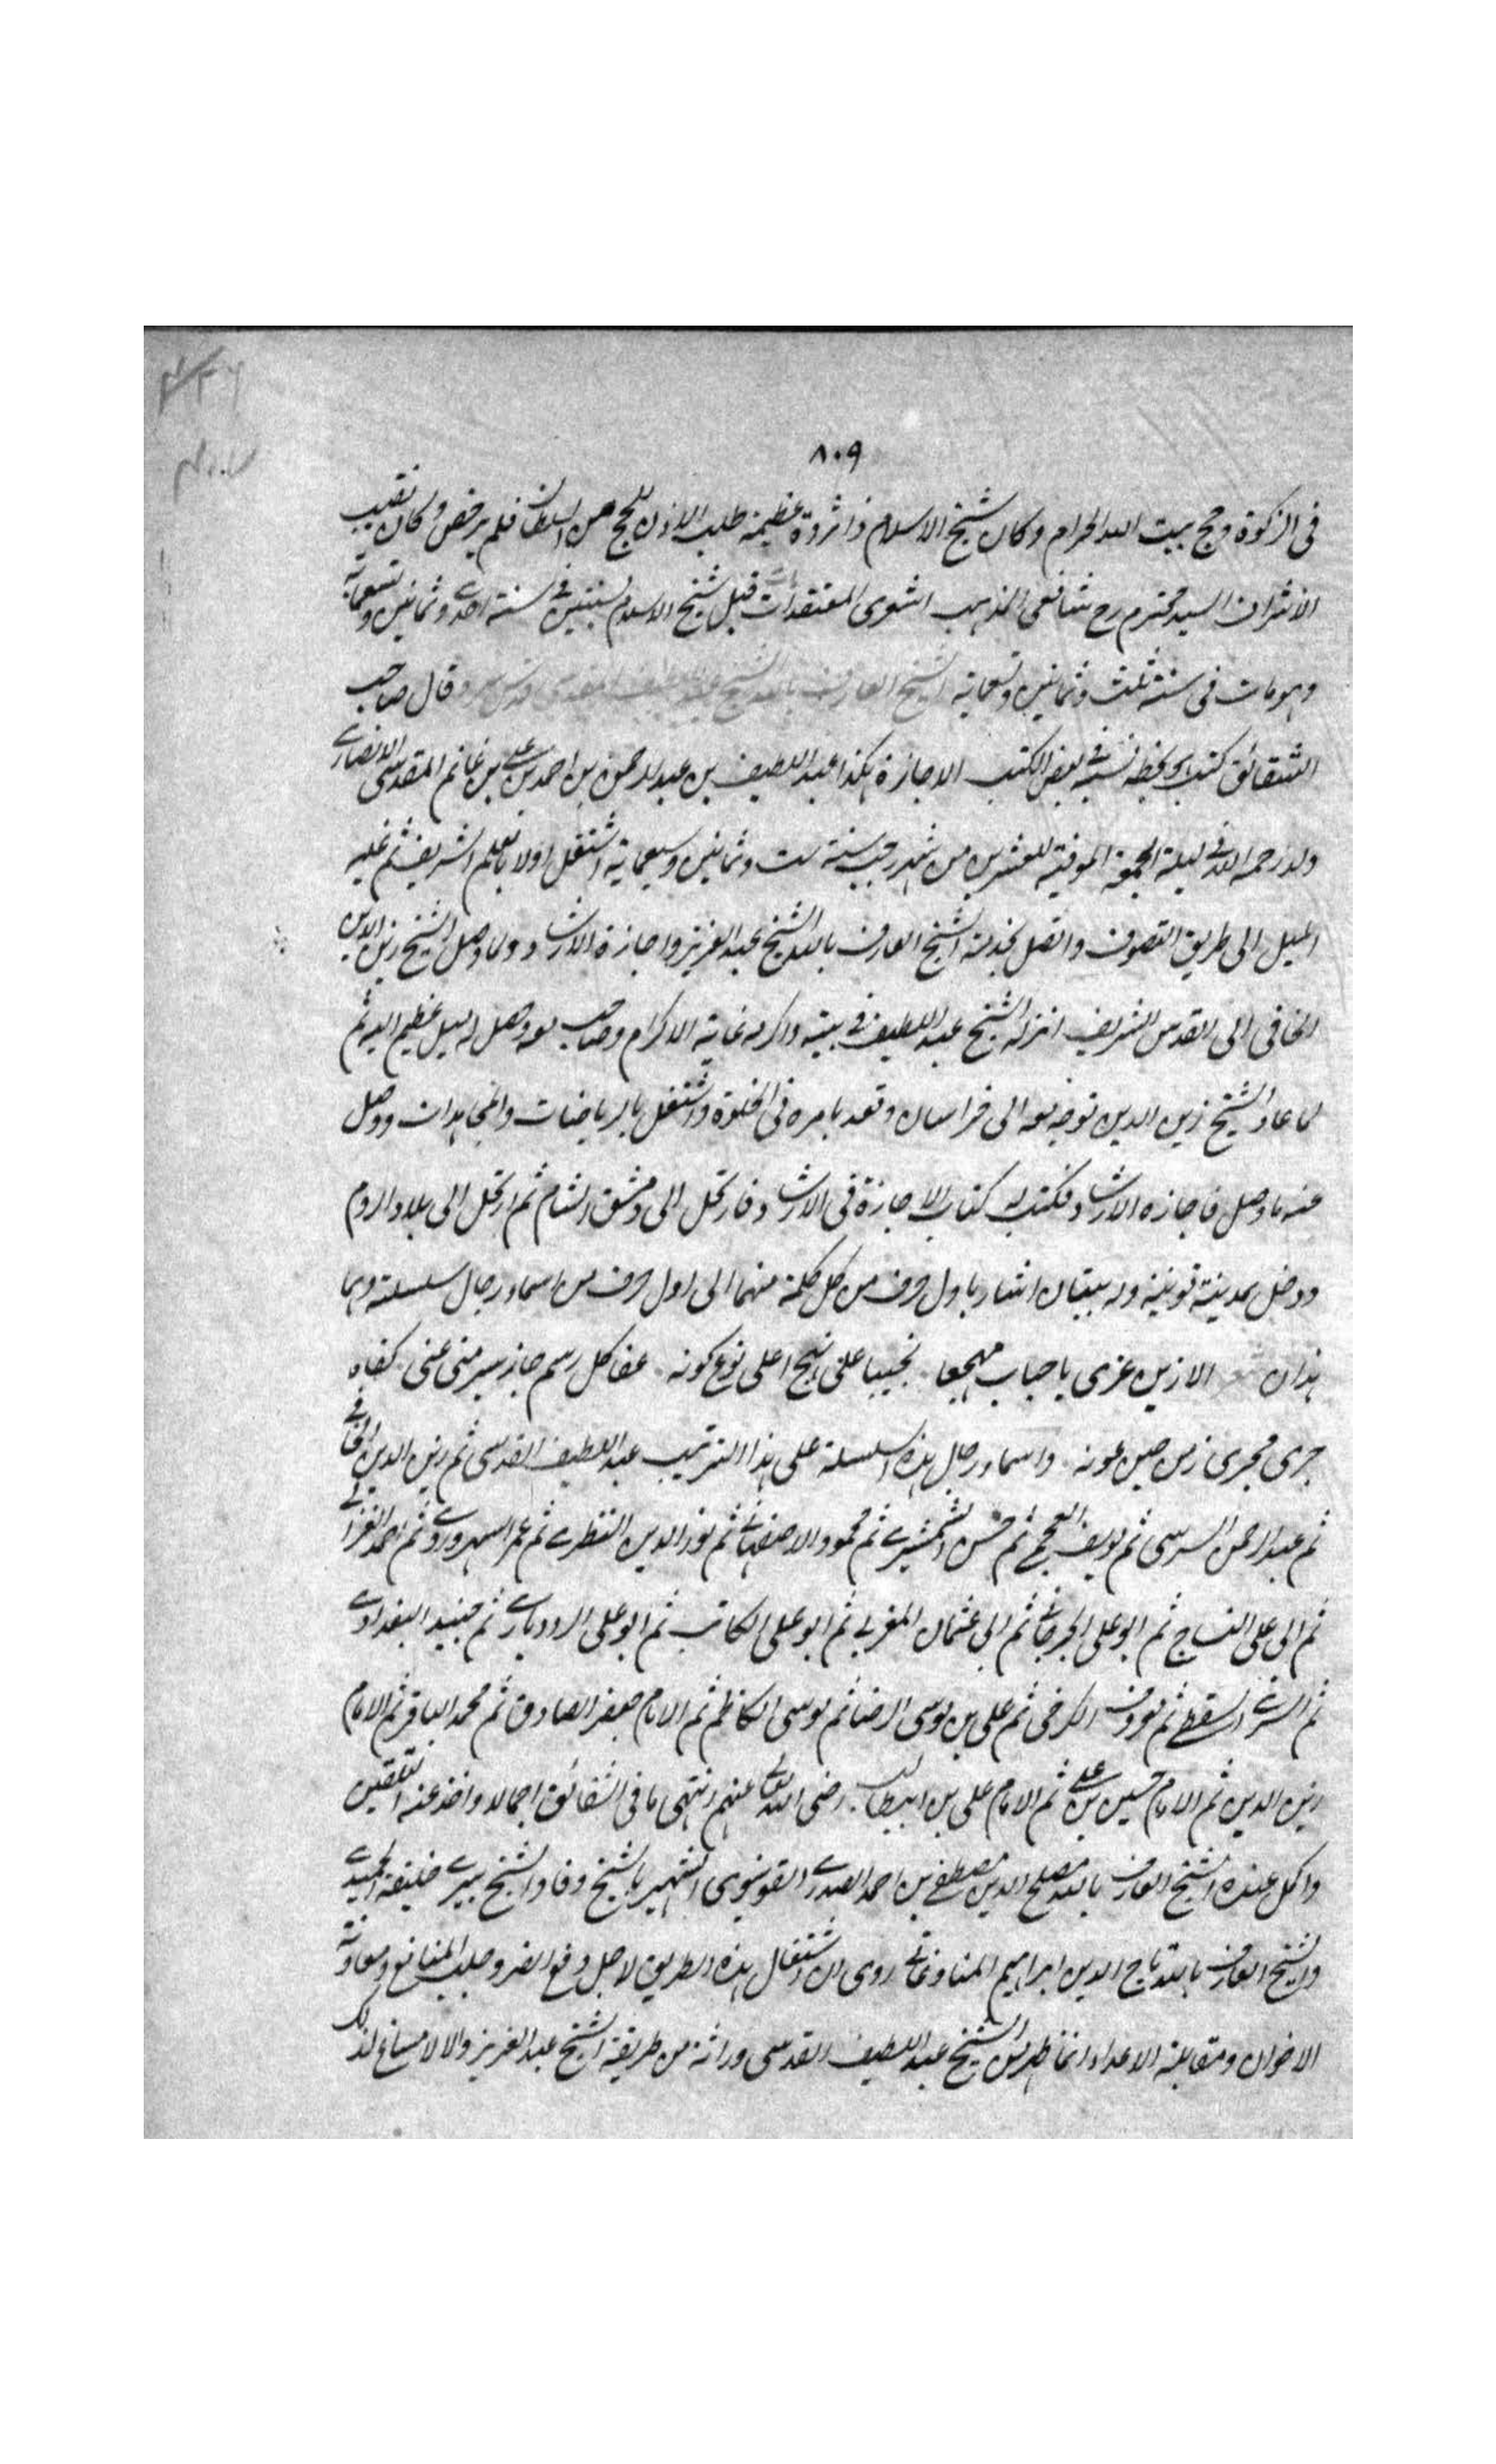 ٨٠٩
فى الزكوة وحج بيت الله الحرام وكان شيخ الاسلام ذا ثروة عظيمة طلب الاذن للحج من السلطان فلم يرخص وكان نقيب
الاشراف السيد محترم رح شافعى المذهب اشعرى المعتقدات قبل شيخ الاسلام بسنتين فى سنة احدى وثمانين وتسعماية
وهو مات فى سنة ثلث وثمانين وتسعماية الشيخ العارف بالله الشيخ عبد اللطيف المقدسى قدس سره قال صاحب
الشقائق كتب بخطه نسبه فى بعض الكتب الاجازة هكذا عبد اللطيف بن عبد الرحمن بن احمد بن على بن غانم المقدسى الانصارى
ولد رحمه الله فى ليلة الجمعة الموفية للعشرين من شهر رجب سنة ست وثمانين وسبعماية اشتغل اولا بالعلم الشريف ثم غلبه
الميل الى طريق التصوف واتصل بخدمة الشيخ العارف بالله الشيخ عبد العزيز واجازه الارشاد ولما وصل الشيخ زين الدين
الخافى الى القدس الشريف انزله الشيخ عبد اللطيف فى بيته واكرمه غاية الاكرام وصاحب معه وحصل له ميل عظيم اليه ثم
لما عاد الشيخ زين الدين توجه معه الى خراسان وقعد بامره فى الخلوة واشتغل بالرياضات والمجاهدات ووصل
منه ما وصل فاجازه الارشاد فكتب له كتاب الاجازة فى الارشاد فارتحل الى دمشق الشام ثم ارتحل الى بلاد الروم
ودخل بمدينة قونية وله بيتان اشار باول حرف من كل كلمة منهما الى اول حرف من اسماء رجال سلسلته وهما
هذان الا زين عزى يا حباب مهجعا نجيبا على نهج اعلى نوع كونه عفا كل رسم جاز سير منى عنى كفاه
جرى مجرى زمن حين عونه واسماء رجال هذه السلسلة على هذا الترتيب عبد اللطيف القدسى ثم زين الدين الخافى
ثم عبد الرحمن السرسى ثم يوسف العجمى ثم حسن الشمشيرى ثم محمود الاصفهانى ثم نور الدين النطزى ثم عمر السهروردى ثم احمد الغزالى
ثم ابى على النساج ثم ابو على الجرجانى ثم ابى عثمان المغربى ثم ابو على الكاتب ثم ابو على الرودبارى ثم جنيد البغدادى
ثم السرى السقطى ثم معروف الكرخى ثم على بن موسى الرضا ثم موسى الكاظم ثم الامام جعفر الصادق ثم محمد الباقر ثم الامام
زين الدين ثم الامام حسين بن على ثم الامام على بن ابيطالب رضى الله تعالى عنهم انتهى ما فى الشقائق اجمالا واخذ عنه التلقين
واكمل عنده الشيخ العارف بالله مصلح الدين مصطفى بن احمد الصدرى القونيوى الشهير بالشيخ وفا والشيخ بيرى خليفة الحميدى
والشيخ العارف بالله تاج الدين ابراهيم روى ان اشتغال هذه الطريق لاجل دفع الضر وجلب المنافع ومعاونة
الاخوان ومقابلة الاعداء انما ظهر من الشيخ عبد اللطيف القدسى وراثة من طريقة الشيخ عبد العزيز والا لا مساغ لذلك